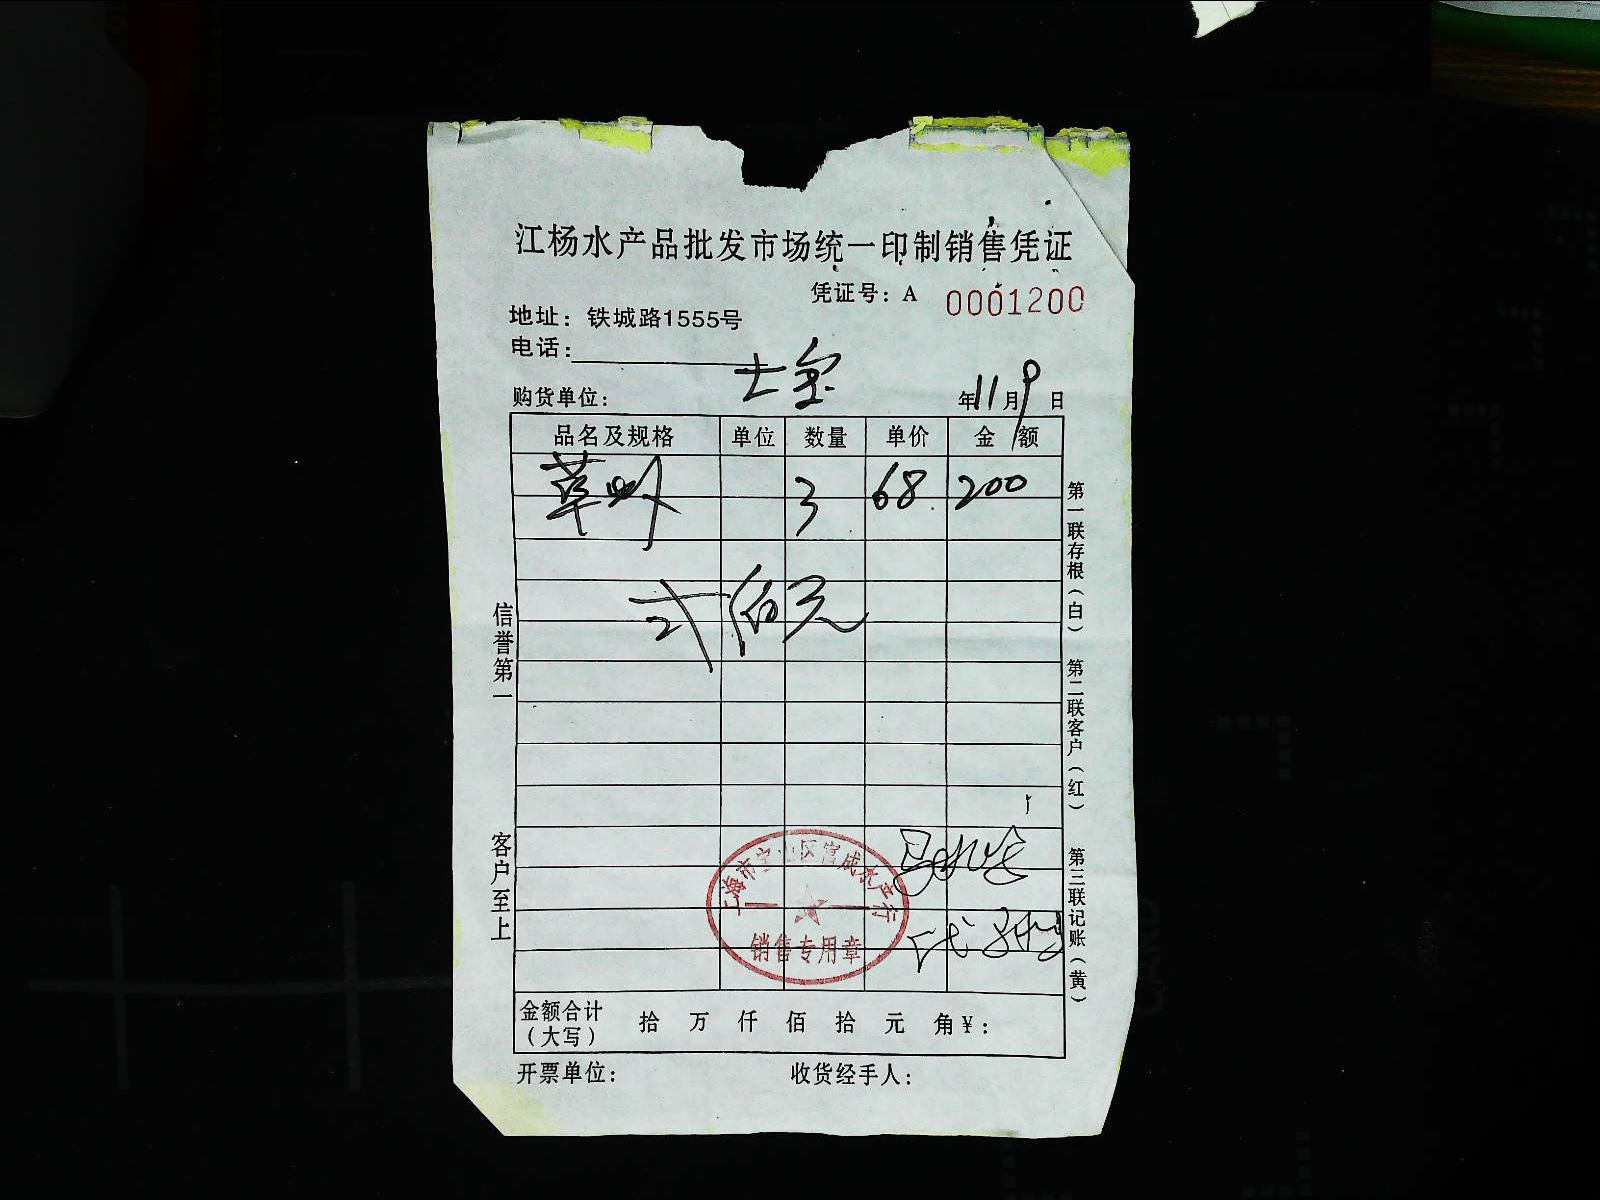 江杨水产品批发市场统一印制销售凭证
凭证号：A 0001200
地址：铁城路1555号
电话：
购货单位： 士宝 年11月9日
品名及规格 单位 数量 单价 金额
草虾 3 68 200
弍佰元
信誉第一
客户至上
第一联存根（白） 第二联客户（红） 第三联记账（黄）
上海市宝山区官成水产行
销售专用章
代
金额合计（大写） 拾 万 仟 佰 拾 元 角 ¥：
开票单位： 收货经手人：